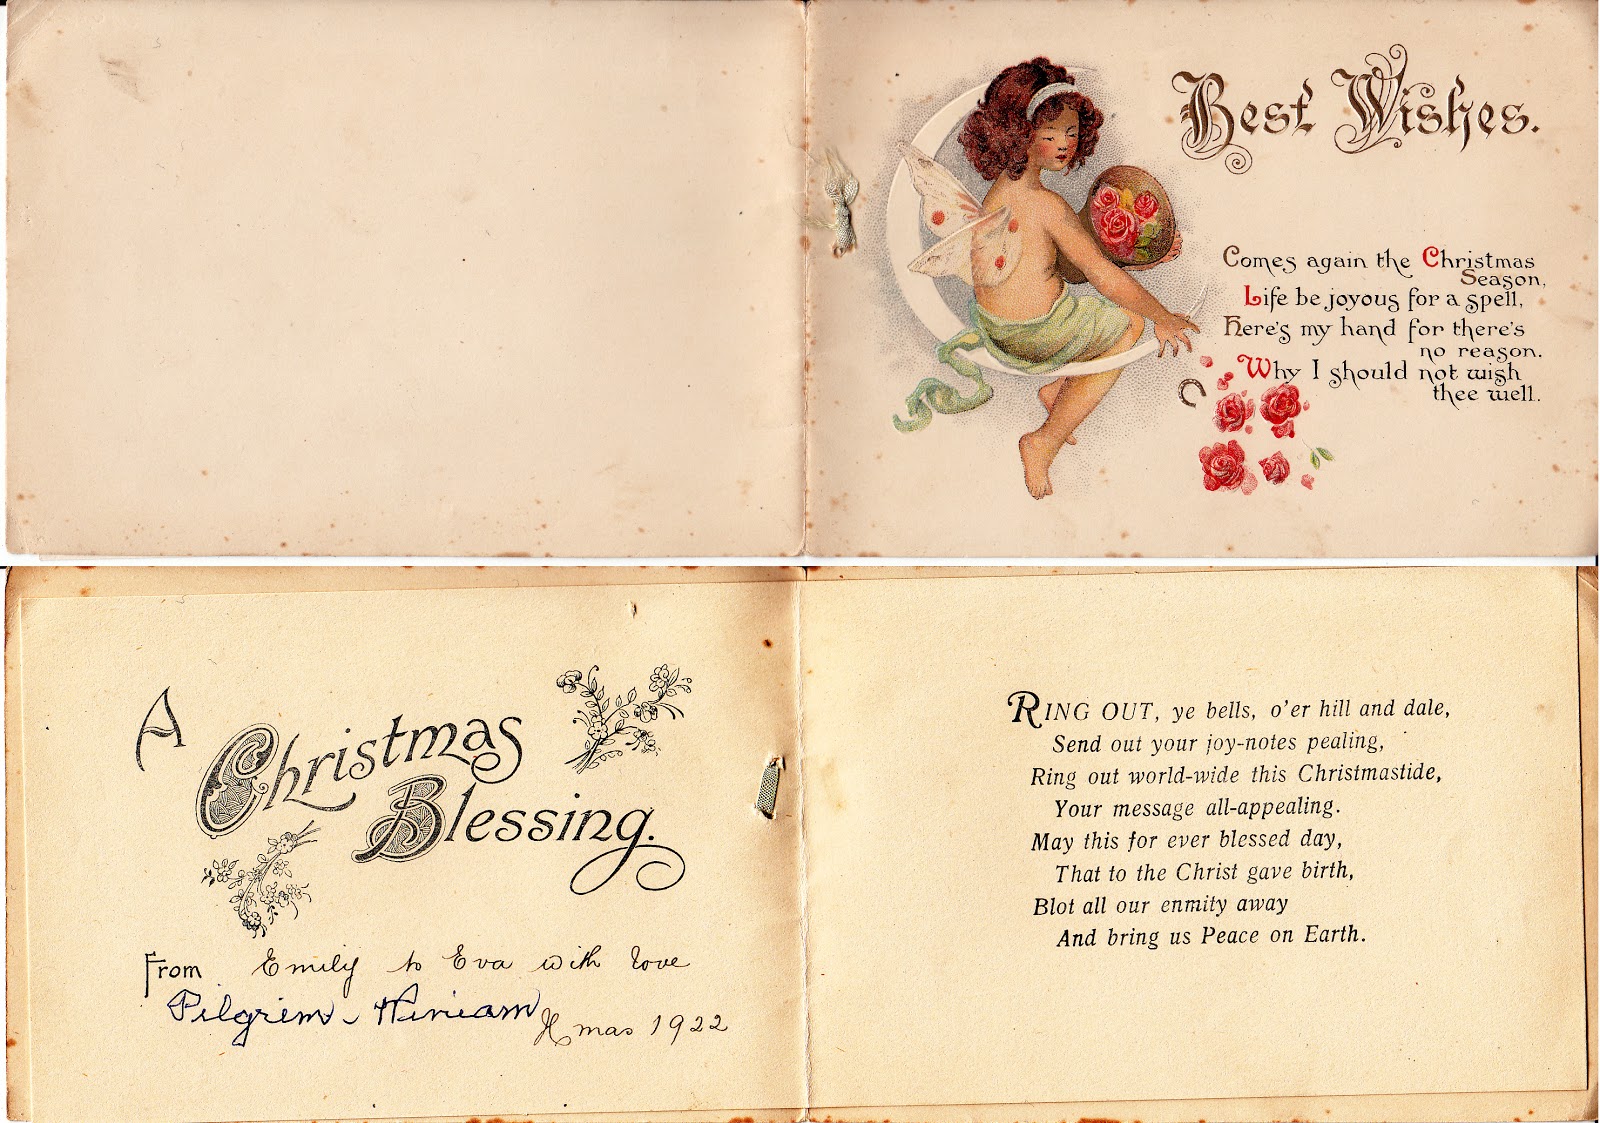 Best Wishes.
Comes again the Christmas
Season,
Life be joyous for a spell,
Here's my hand for there's
no reason.
Why I should not wish
thee well.
A
Christmas
Blessing.
From Emily to Eva with love
Pilgrim
Xmas 1922
RING OUT, ye bells, o'er hill and dale,
Send out your joy-notes pealing,
Ring out world-wide this Christmastide,
Your message all-appealing.
May this for ever blessed day,
That to the Christ gave birth,
Blot all our enmity away
And bring us Peace on Earth.